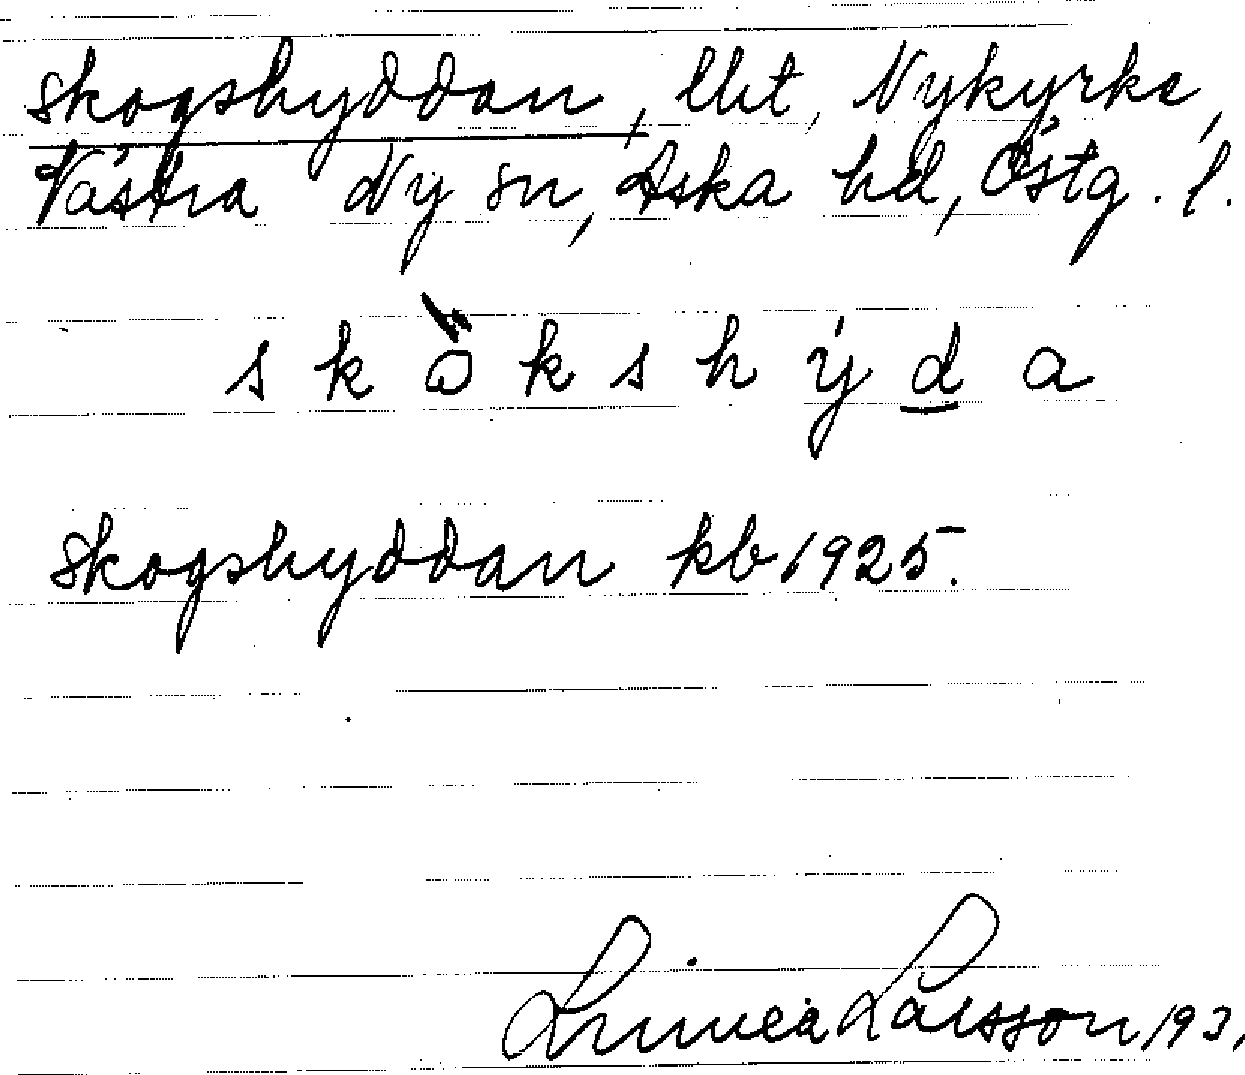 Skogshyddan, lht, Nykyrka,
Västra Ny sn, Aska hd, Östg. l.
s k ò k s h ý d a
Skogshyddan kb 1925.
Linnéa Larsson 193